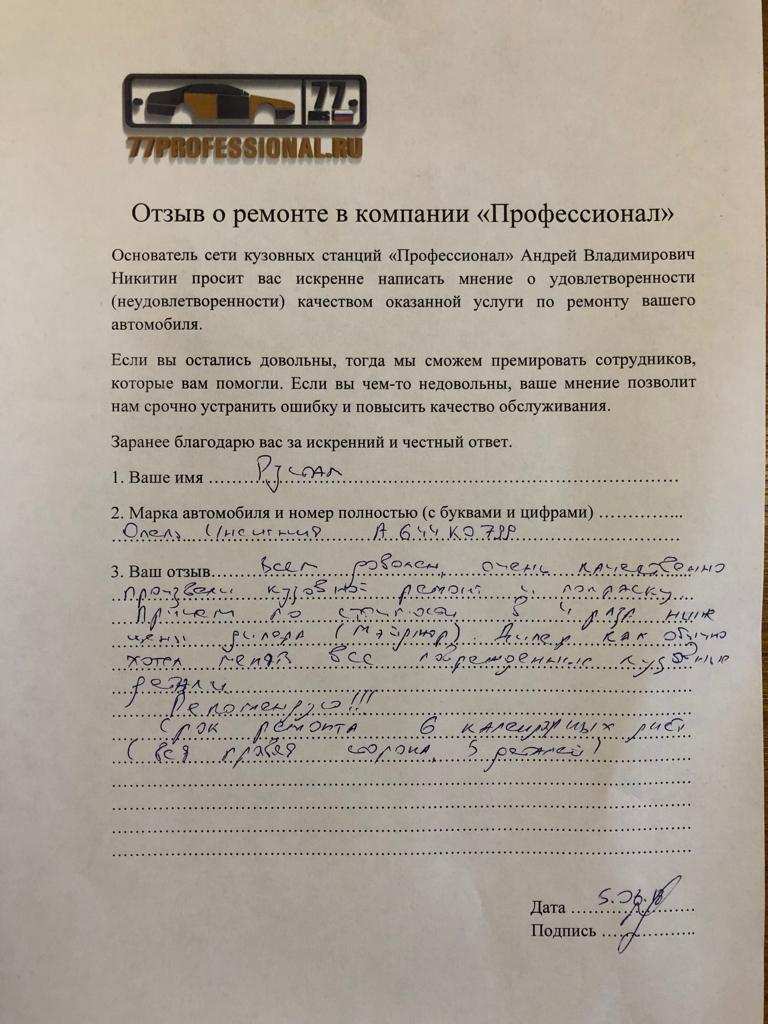 77
77PROFESSIONAL.RU
Отзыв о ремонте в компании «Профессионал»
Основатель сети кузовных станций «Профессионал» Андрей Владимирович
Никитин просит вас искренне написать мнение о удовлетворенности
(неудовлетворенности) качеством оказанной услуги по ремонту вашего
автомобиля.
Если вы остались довольны, тогда мы сможем премировать сотрудников,
которые вам помогли. Если вы чем-то недовольны, ваше мнение позволит
нам срочно устранить ошибку и повысить качество обслуживания.
Заранее благодарю вас за искренний и честный ответ.
1. Ваше имя Руслан
2. Марка автомобиля и номер полностью (с буквами и цифрами)
Опель Инсигния А 644 КО 799
3. Ваш отзыв Всем доволен, очень качественно
произвели кузовной ремонт и покраску.
Причем по стоимости в 4 раза ниже
цены дилера (Мэйджор). Дилер как обычно
хотел менять все поврежденные кузовные
детали
Рекомендую!!!
Срок ремонта 6 календарных
(вся правая сторона, 5 деталей)
Дата
Подпись